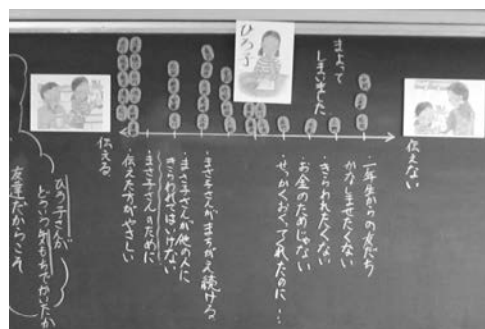 ひろ子
まよって
しまいました
伝えない
・一年生からの友だち
かなしませたくない
・きらわれたくない
・お金のためじゃない
・せっかくおくってくれたのに…
・まさ子さんがまちがえ続ける。
・まさ子さんが他の人に
きらわれてはいけない
・まさ子さんのために
・伝えた方がやさしい
伝える
ひろ子が
どういう気もちでかいたか
友達だからこそ